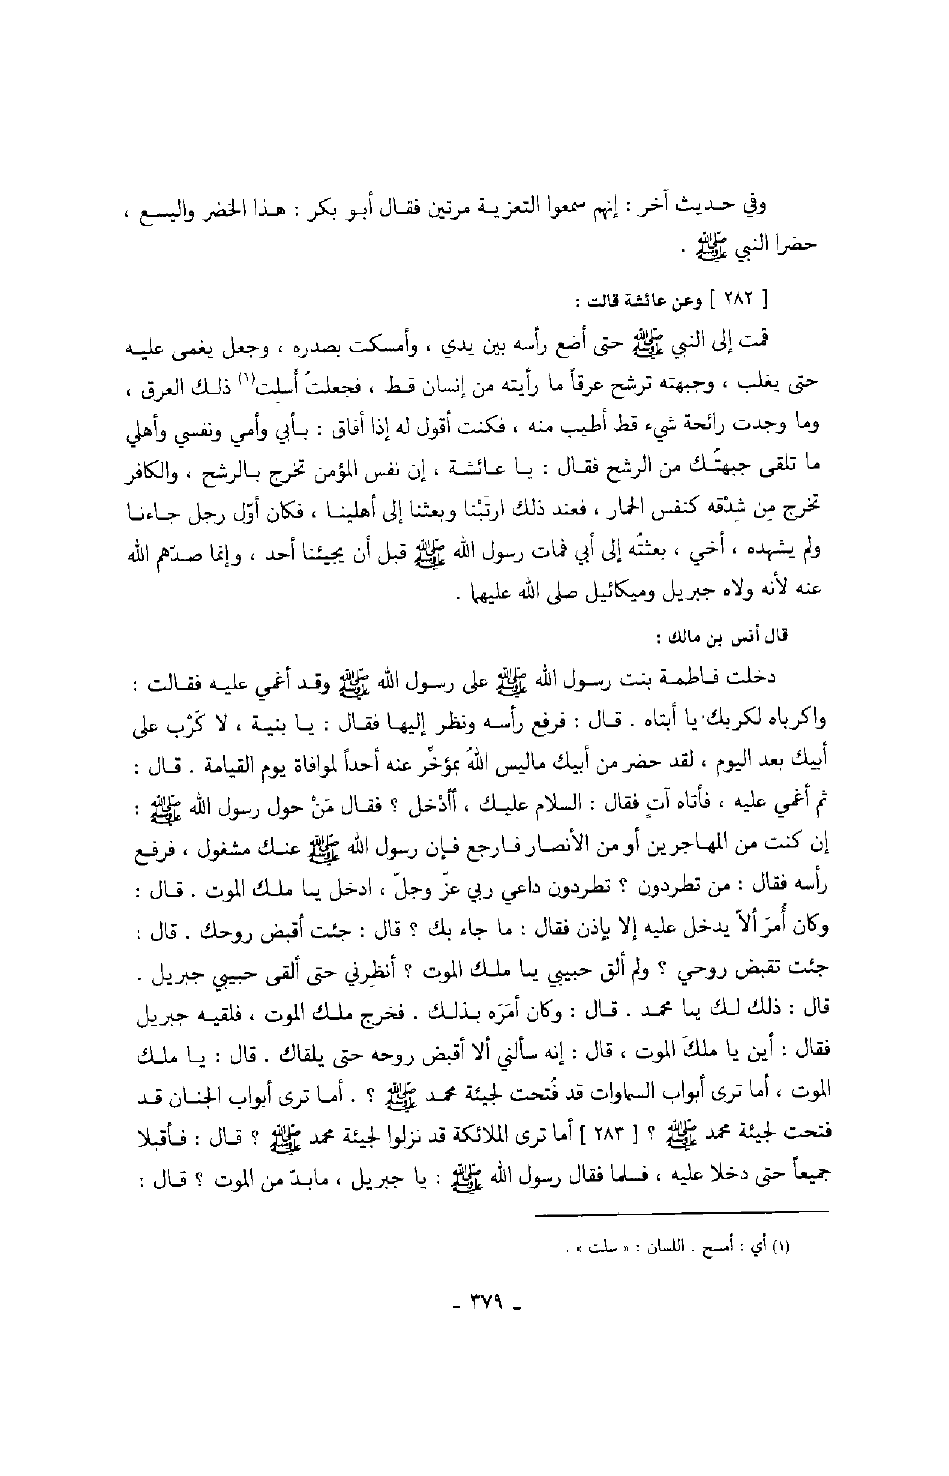 وفي حديث آخر : إنهم سمعوا التعزية مرتين فقال أبو بكر : هذا الخضر واليسع ،
حضرا النبي ﷺ .
[ ٢٨٢ ] وعن عائشة قالت :
قمت إلى النبي ﷺ حتى أضع رأسه بين يدي ، وأمسكت بصدره ، وجعل يغمى عليه
حتى يغلب ، وجبهته ترشح عرقاً ما رأيته من إنسان قط ، فجعلتُ أسلت(١) ذلك العرق ،
وما وجدت رائحة شيء قط أطيب منه ، فكنت أقول له إذا أفاق : بأبي وأمي ونفسي وأهلي
ما تلقى جبهتُك من الرشح فقال : يا عائشة ، إن نفس المؤمن تخرج بالرشح ، والكافر
تخرج مِن شِدْقه كنفس الحمار ، فعند ذلك ارتَبْنا وبعثنا إلى أهلينا ، فكان أوّل رجل جاءنا
ولم يشهده ، أخي ، بعثتُه إلى أبي فمات رسول الله ﷺ قبل أن يجيئنا أحد ، وإنما صدّهم الله
عنه لأنه ولاه جبريل وميكائيل صلى الله عليهما .
قال أنس بن مالك :
دخلت فاطمة بنت رسول الله ﷺ على رسول الله ﷺ وقد أغمي عليه فقالت :
واكرباه لكربك يا أبتاه . قال : فرفع رأسه ونظر إليها فقال : يا بنية ، لا كَرْب على
أبيك بعد اليوم ، لقد حضر من أبيك ماليس اللهُ بمؤخِّر عنه أحداً لموافاة يوم القيامة . قال :
ثم أغمي عليه ، فأتاه آتٍ فقال : السلام عليك ، أأدْخل ؟ فقال مَنْ حول رسول الله ﷺ :
إن كنت من المهاجرين أو من الأنصار فارجع فإن رسول الله ﷺ عنك مشغول ، فرفع
رأسه فقال : من تطردون ؟ تطردون داعي ربي عزّ وجلّ ، ادخل يا ملك الموت . قال :
وكان أُمرَ ألاّ يدخل عليه إلا بإذن فقال : ما جاء بك ؟ قال : جئت أقبض روحك . قال :
جئت تقبض روحي ؟ ولم ألق حبيبي يا ملك الموت ؟ أنظرني حتى ألقى حبيبي جبريل .
قال : ذلك لك يا محمد . قال : وكان أمَرَه بذلك . فخرج ملك الموت ، فلقيه جبريل
فقال : أين يا ملكَ الموت ، قال : إنه سألني ألا أقبض روحه حتى يلقاك . قال : يا ملك
الموت ، أما ترى أبواب السماوات قد فُتحت لجيئة محمد ﷺ ؟ . أما ترى أبواب الجنان قد
فتحت لجيئة محمد ﷺ ؟ [ ٢٨٣ ] أما ترى الملائكة قد نزلوا لجيئة محمد ﷺ ؟ قال : فأقبلا
جميعاً حتى دخلا عليه ، فسلما فقال رسول الله ﷺ : يا جبريل ، مابدّ من الموت ؟ قال :
(١) أي : أمسح . اللسان : « سلت » .
- ٣٧٩ -